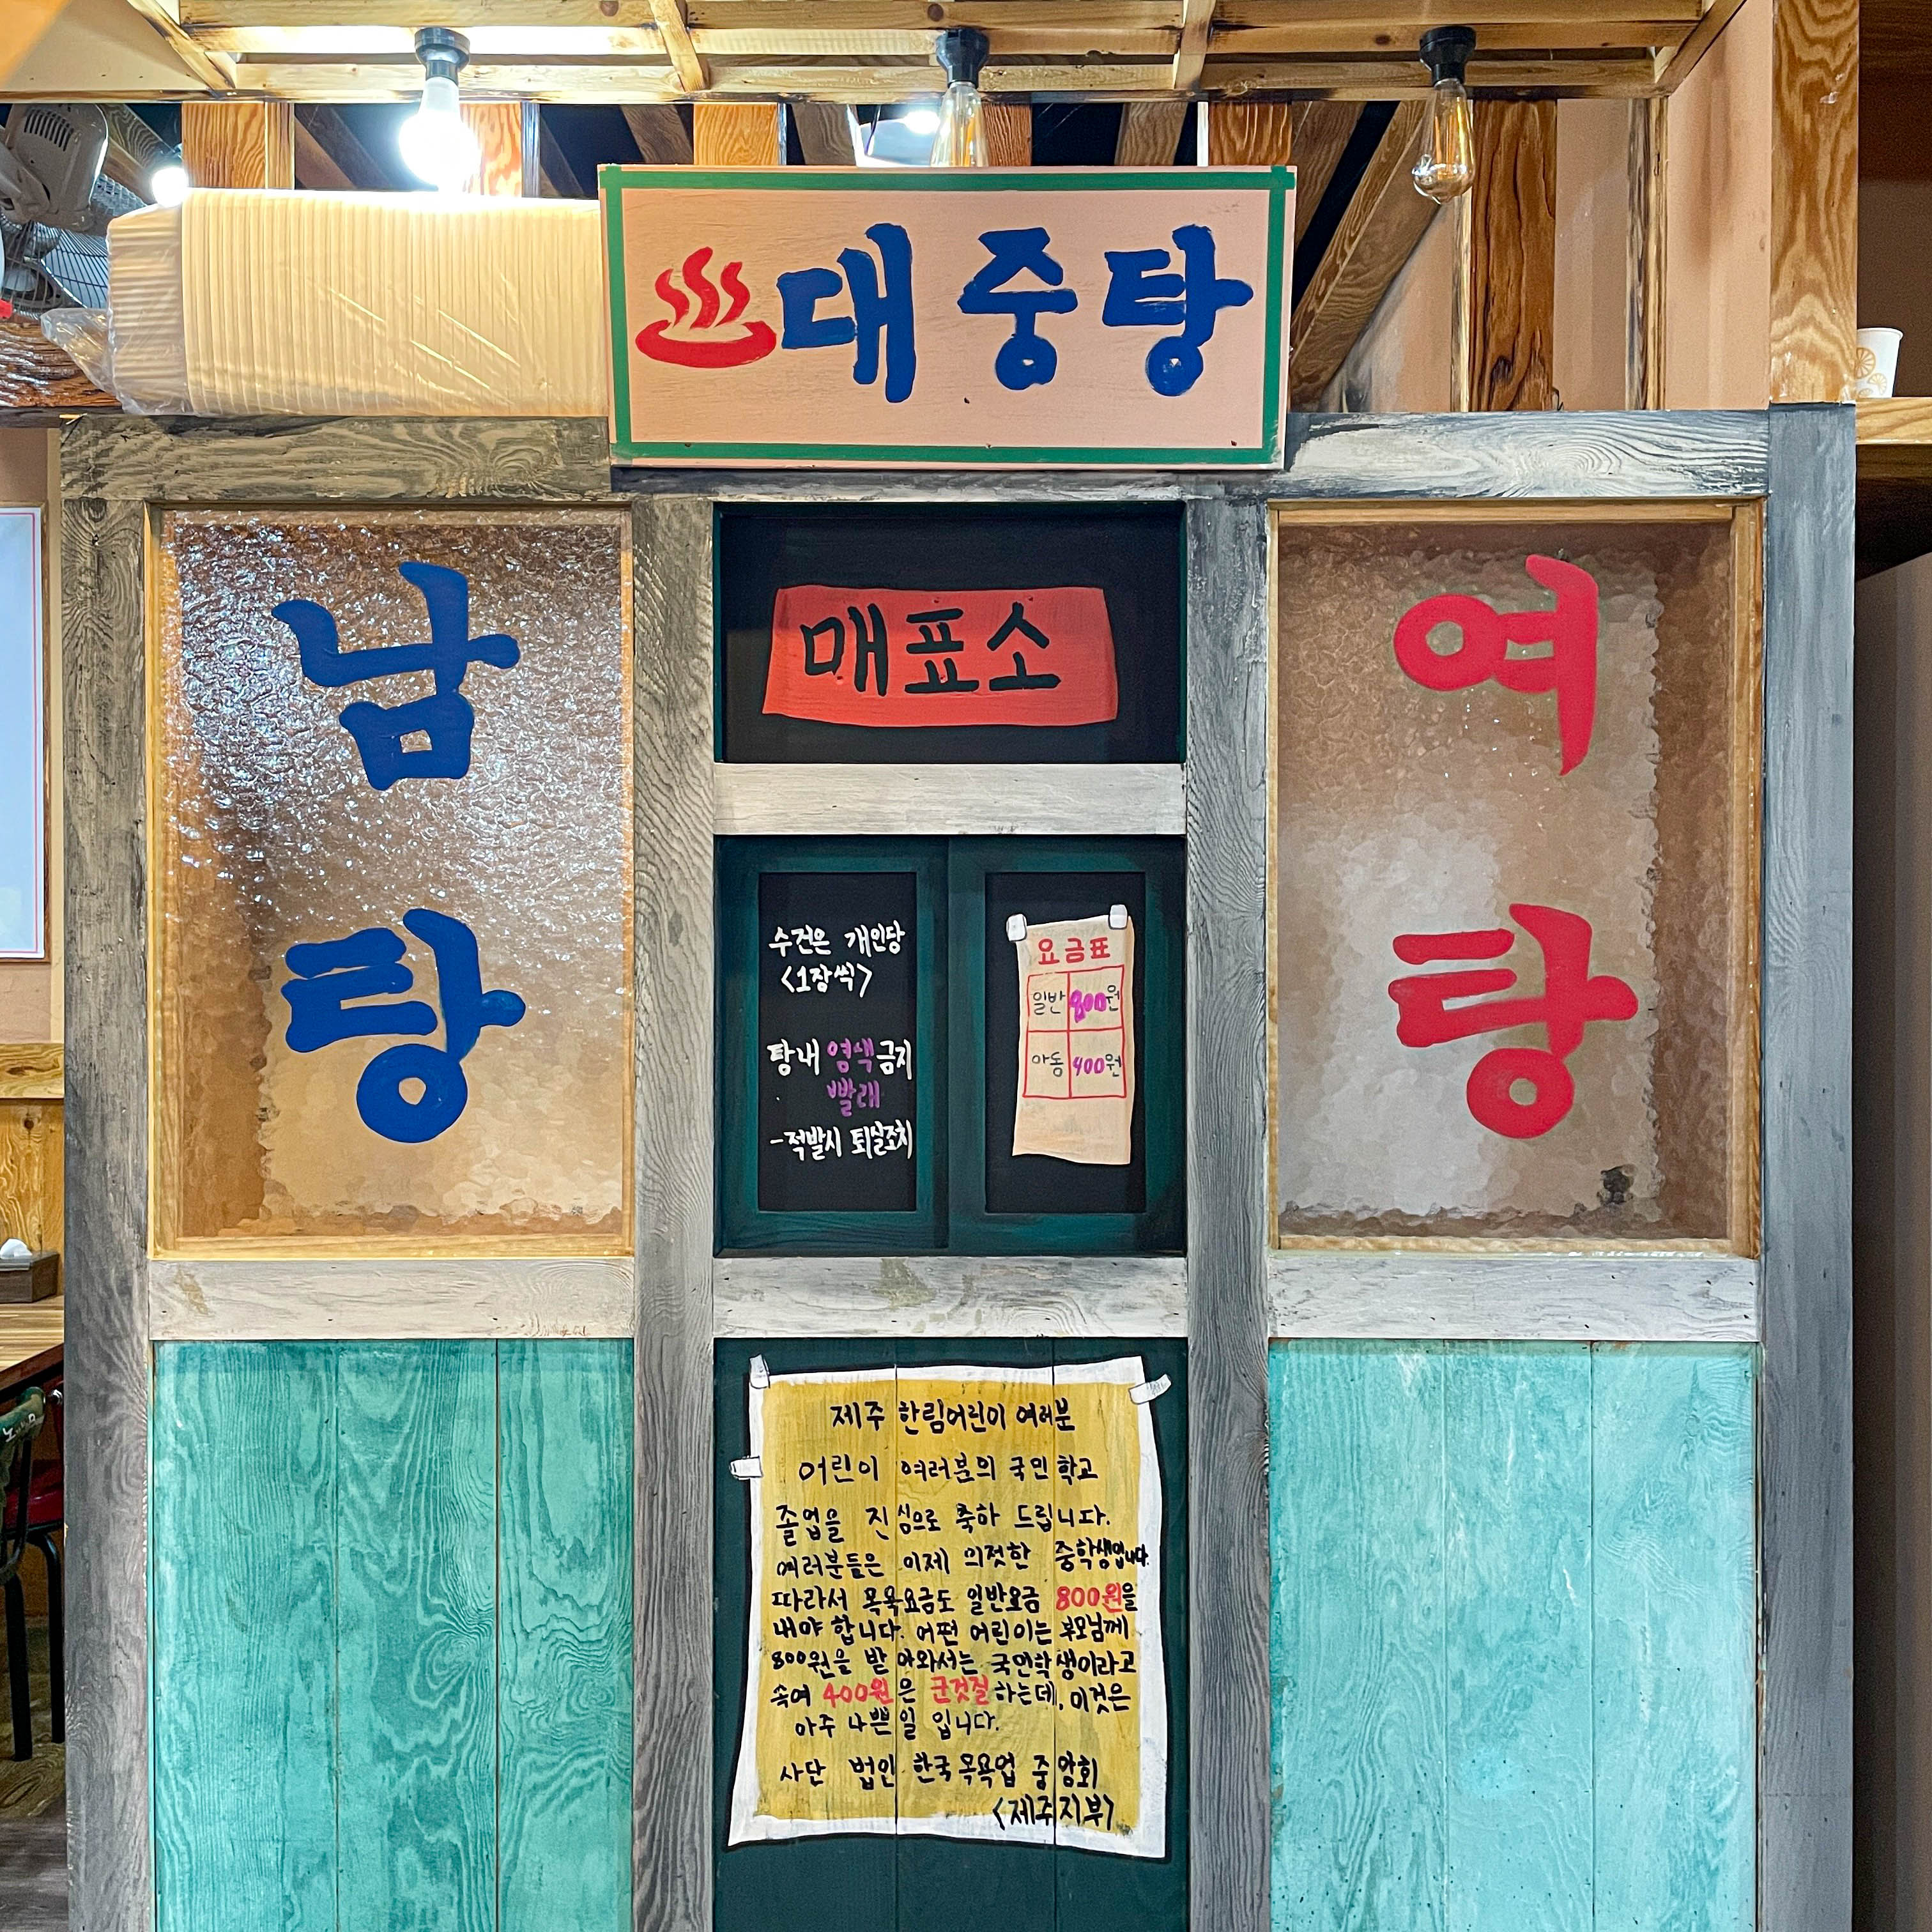 대중탕
남탕
매표소
여탕
수건은 개인당
<1장씩>
탕내 염색금지
빨래
-적발시 퇴실조치
요금표
일반 800원
아동 400원
제주 한림어린이 여러분
어린이 여러분의 국민학교
졸업을 진심으로 축하 드립니다.
여러분들은 이제 의젓한 중학생입니다.
따라서 목욕요금도 일반요금 800원을
내야 합니다. 어떤 어린이는 부모님께
800원을 받아와서는 국민학생이라고
속여 400원은 군것질하는데, 이것은
아주 나쁜일 입니다.
사단 법인 한국목욕업 중앙회
<제주지부>